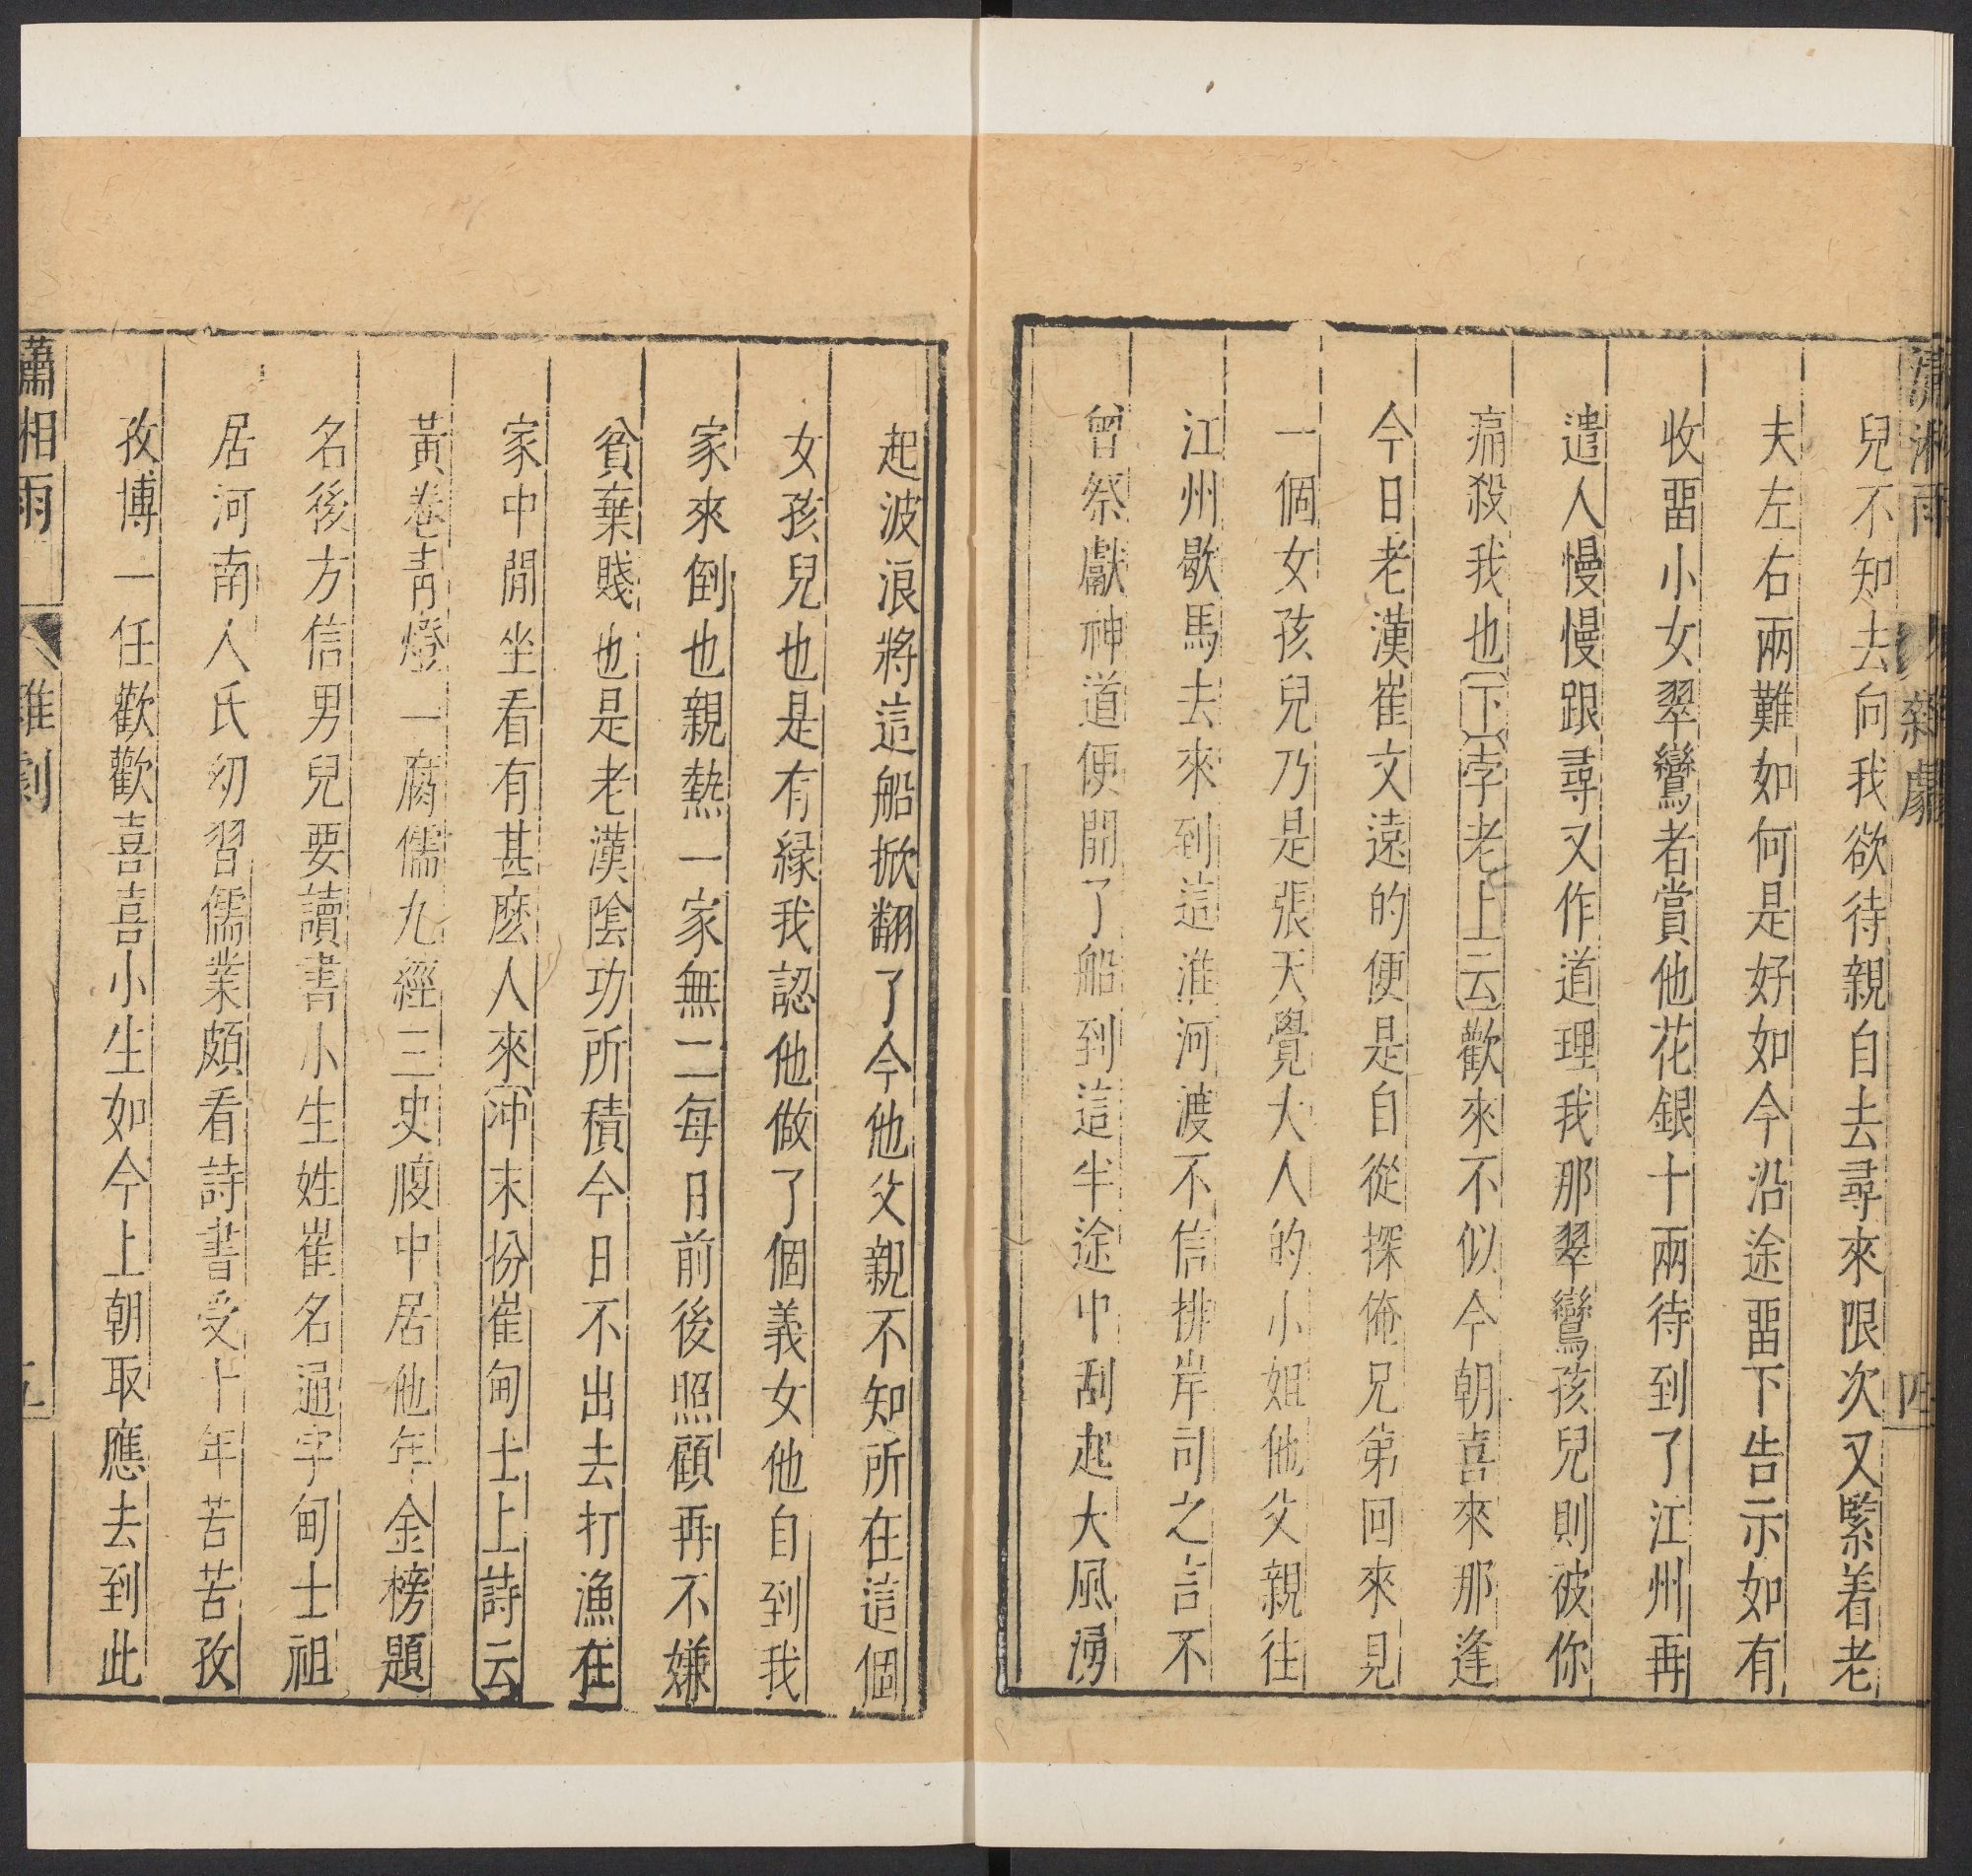 瀟湘雨 雜劇 四
兒不知去向我欲待親自去尋來限次又緊着老
夫左右兩難如何是好如今沿途畱下告示如有
收畱小女翠鸞者賞他花銀十兩待到了江州再
遣人慢慢跟尋又作道理我那翠鸞孩兒則被你
痛殺我也下孛老上云歡來不似今朝喜來那逢
今日老漢崔文遠的便是自從探俺兄弟回來見
一個女孩兒乃是張天覺大人的小姐他父親往
江州歇馬去來到這淮河渡不信排岸司之言不
曾祭獻神道便開了船到這半途中刮起大風湧
起波浪將這船掀翻了今他父親不知所在這個
女孩兒也是有緣我認他做了個義女他自到我
家來倒也親熱一家無二每月前後照顧再不嫌
貧棄賤也是老漢陰功所積今日不出去打漁在
家中閒坐看有甚麽人來沖末扮崔甸士上詩云
黃卷青燈一腐儒九經三史腹中居他年金榜題
名後方信男兒要讀書小生姓崔名通字甸士祖
居河南人氏幼習儒業頗看詩書受十年苦苦孜
孜博一任歡歡喜喜小生如今上朝取應去到此
瀟湘雨 雜劇 五